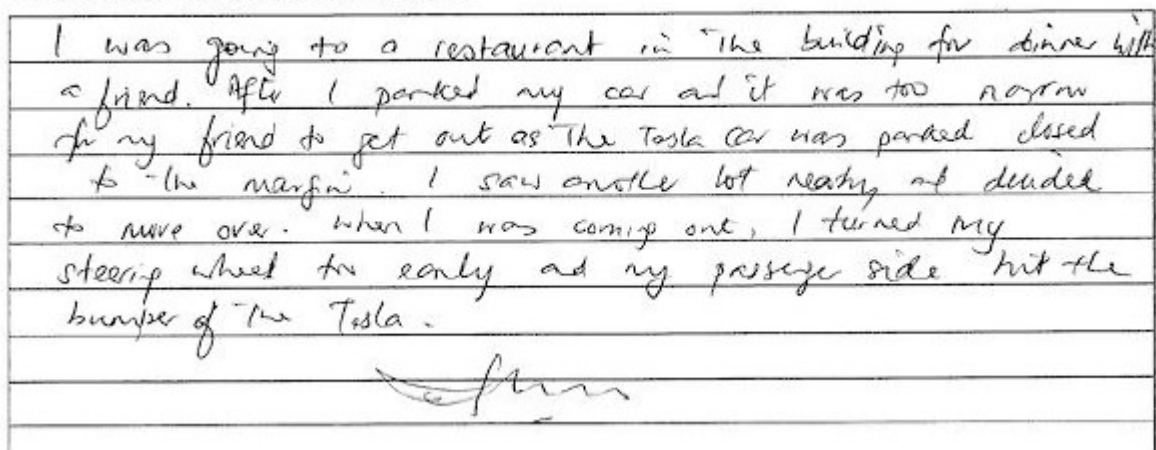 I was going to a restaurant in the building for dinner with
a friend. After I parked my car and it was too narrow
for my friend to get out as the Tesla car was parked closed
to the margin. I saw another lot nearby and decided
to move over. When I was coming out, I turned my
steering wheel too early and my passenger side hit the
bumper of the Tesla.